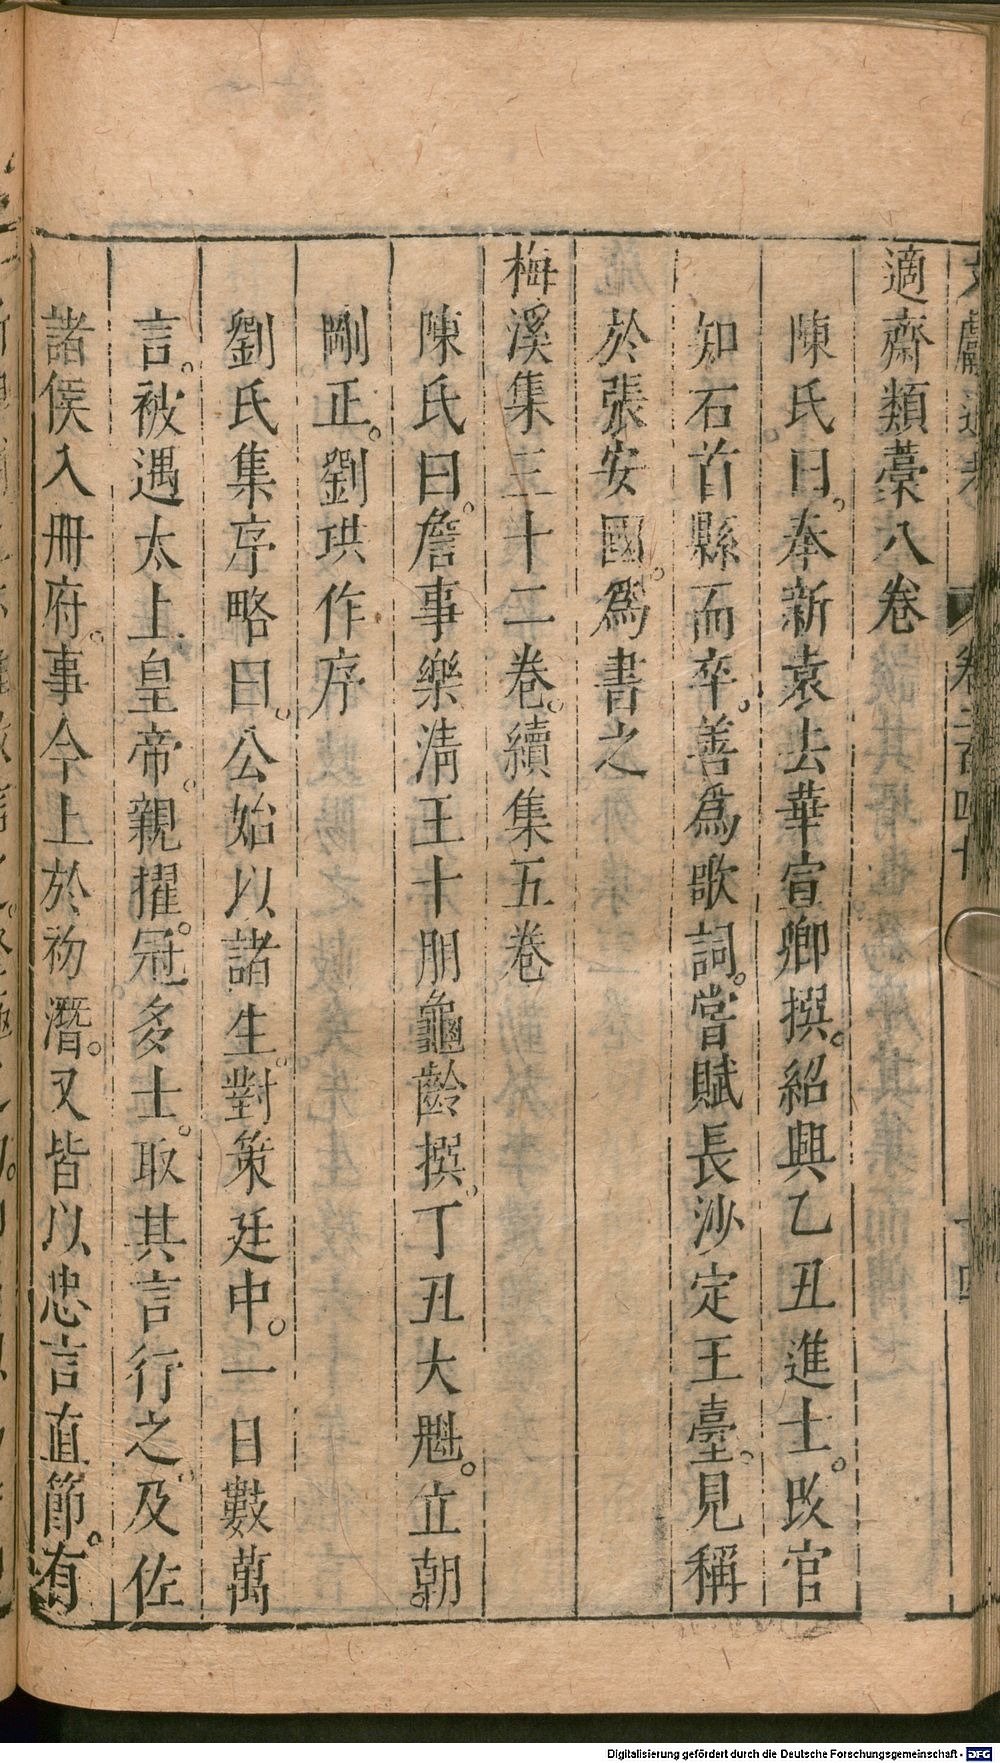 適齋類藁八卷
陳氏曰。奉新袁去華宣卿撰。紹興乙丑進士。改官
知石首縣而卒。善爲歌詞。嘗賦長沙定王臺。見稱
於張安國。爲書之
梅溪集三十二卷。續集五卷
陳氏曰。詹事樂淸王十朋龜齡撰。丁丑大魁。立朝。
剛正。劉珙作序
劉氏集序略曰。公始以諸生。對策廷中。一日數萬
言。被遇太上皇帝。親擢。冠多士。取其言行之。及佐
諸侯入冊府。事今上於初潛。又皆以忠言直節。有
Digitalisierung gefördert durch die Deutsche Forschungsgemeinschaft - DFG